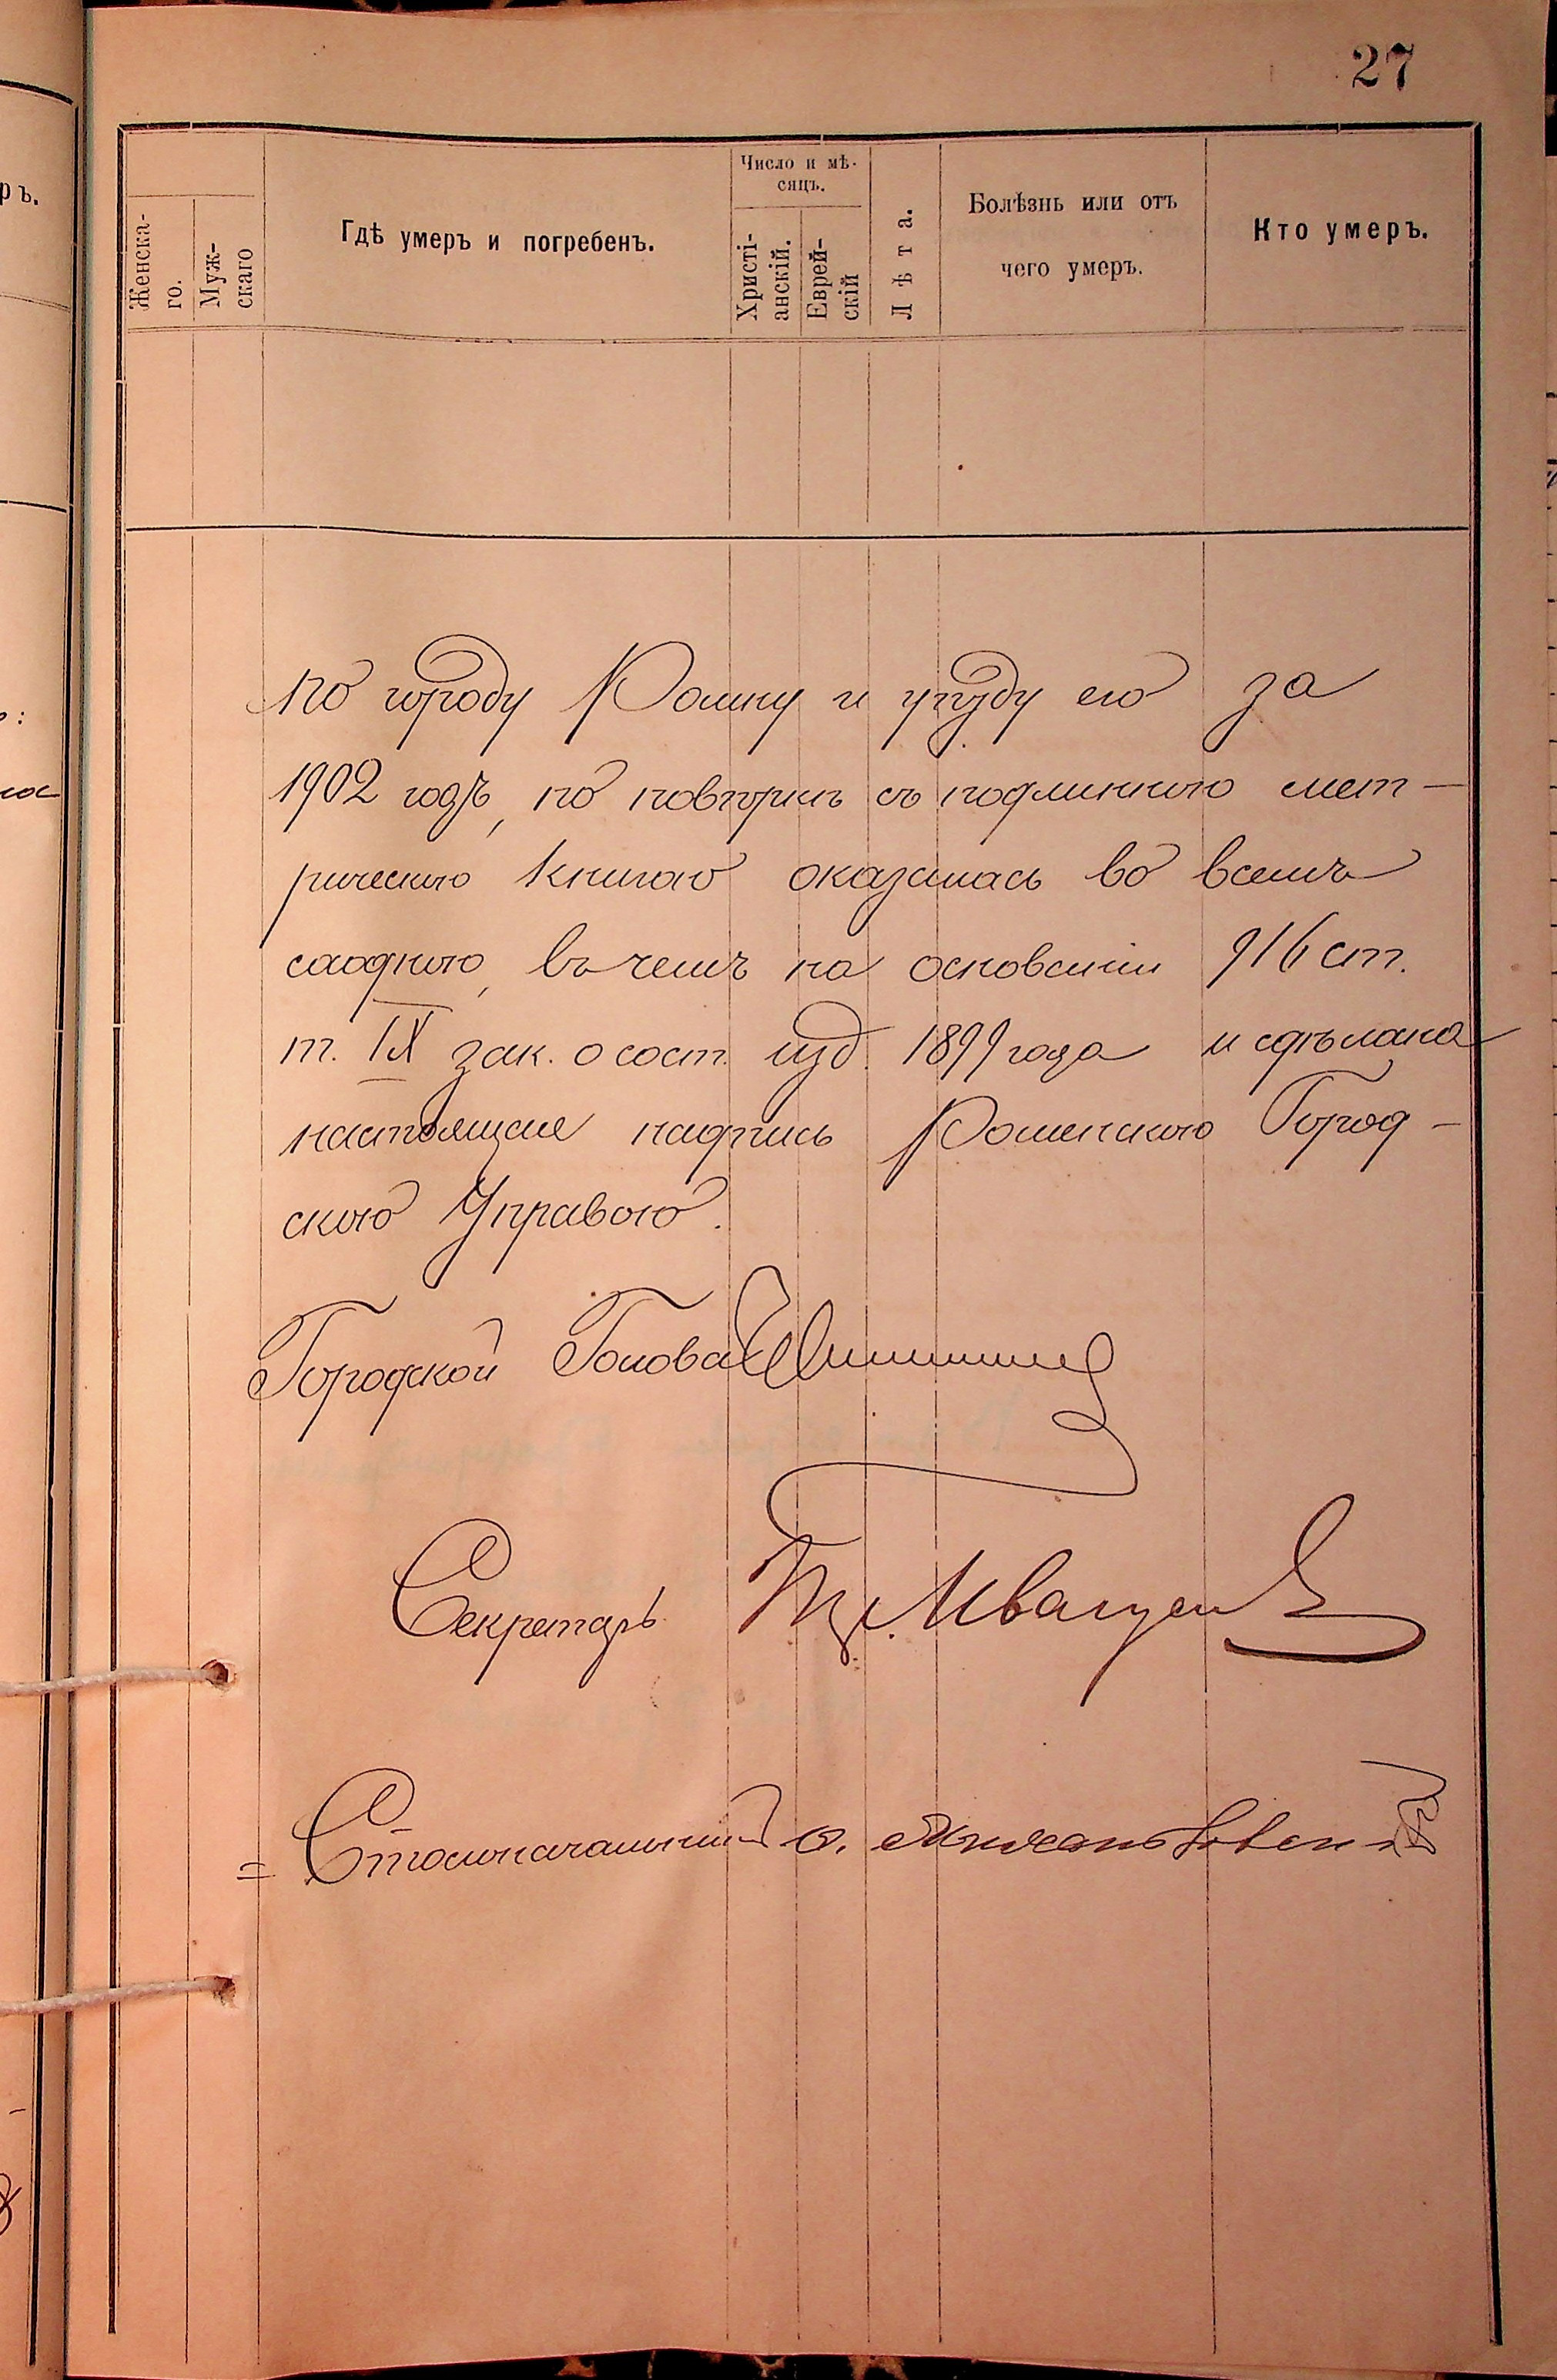 27
Женска-
го.
Муж-
скаго
Гдѣ умеръ и погребенъ.
Число и мѣ-
сяцъ.
Христі-
анскій.
Еврей-
скій
Лѣта.
Болѣзнь или отъ
чего умеръ.
Кто умеръ.
по городу Ромну и уѣзду его за
1902 годъ, по повѣркѣ съ подлинною мет-
рическою книгою оказалась во всемъ
сходною, въ чемъ на основаніи 916 ст.
т. IX зак. о сост. изд. 1899 года и сдѣлана
настоящая надпись Роменскою Город-
скою Управою.
Городской Голова
Секретарь
Столоначальникъ